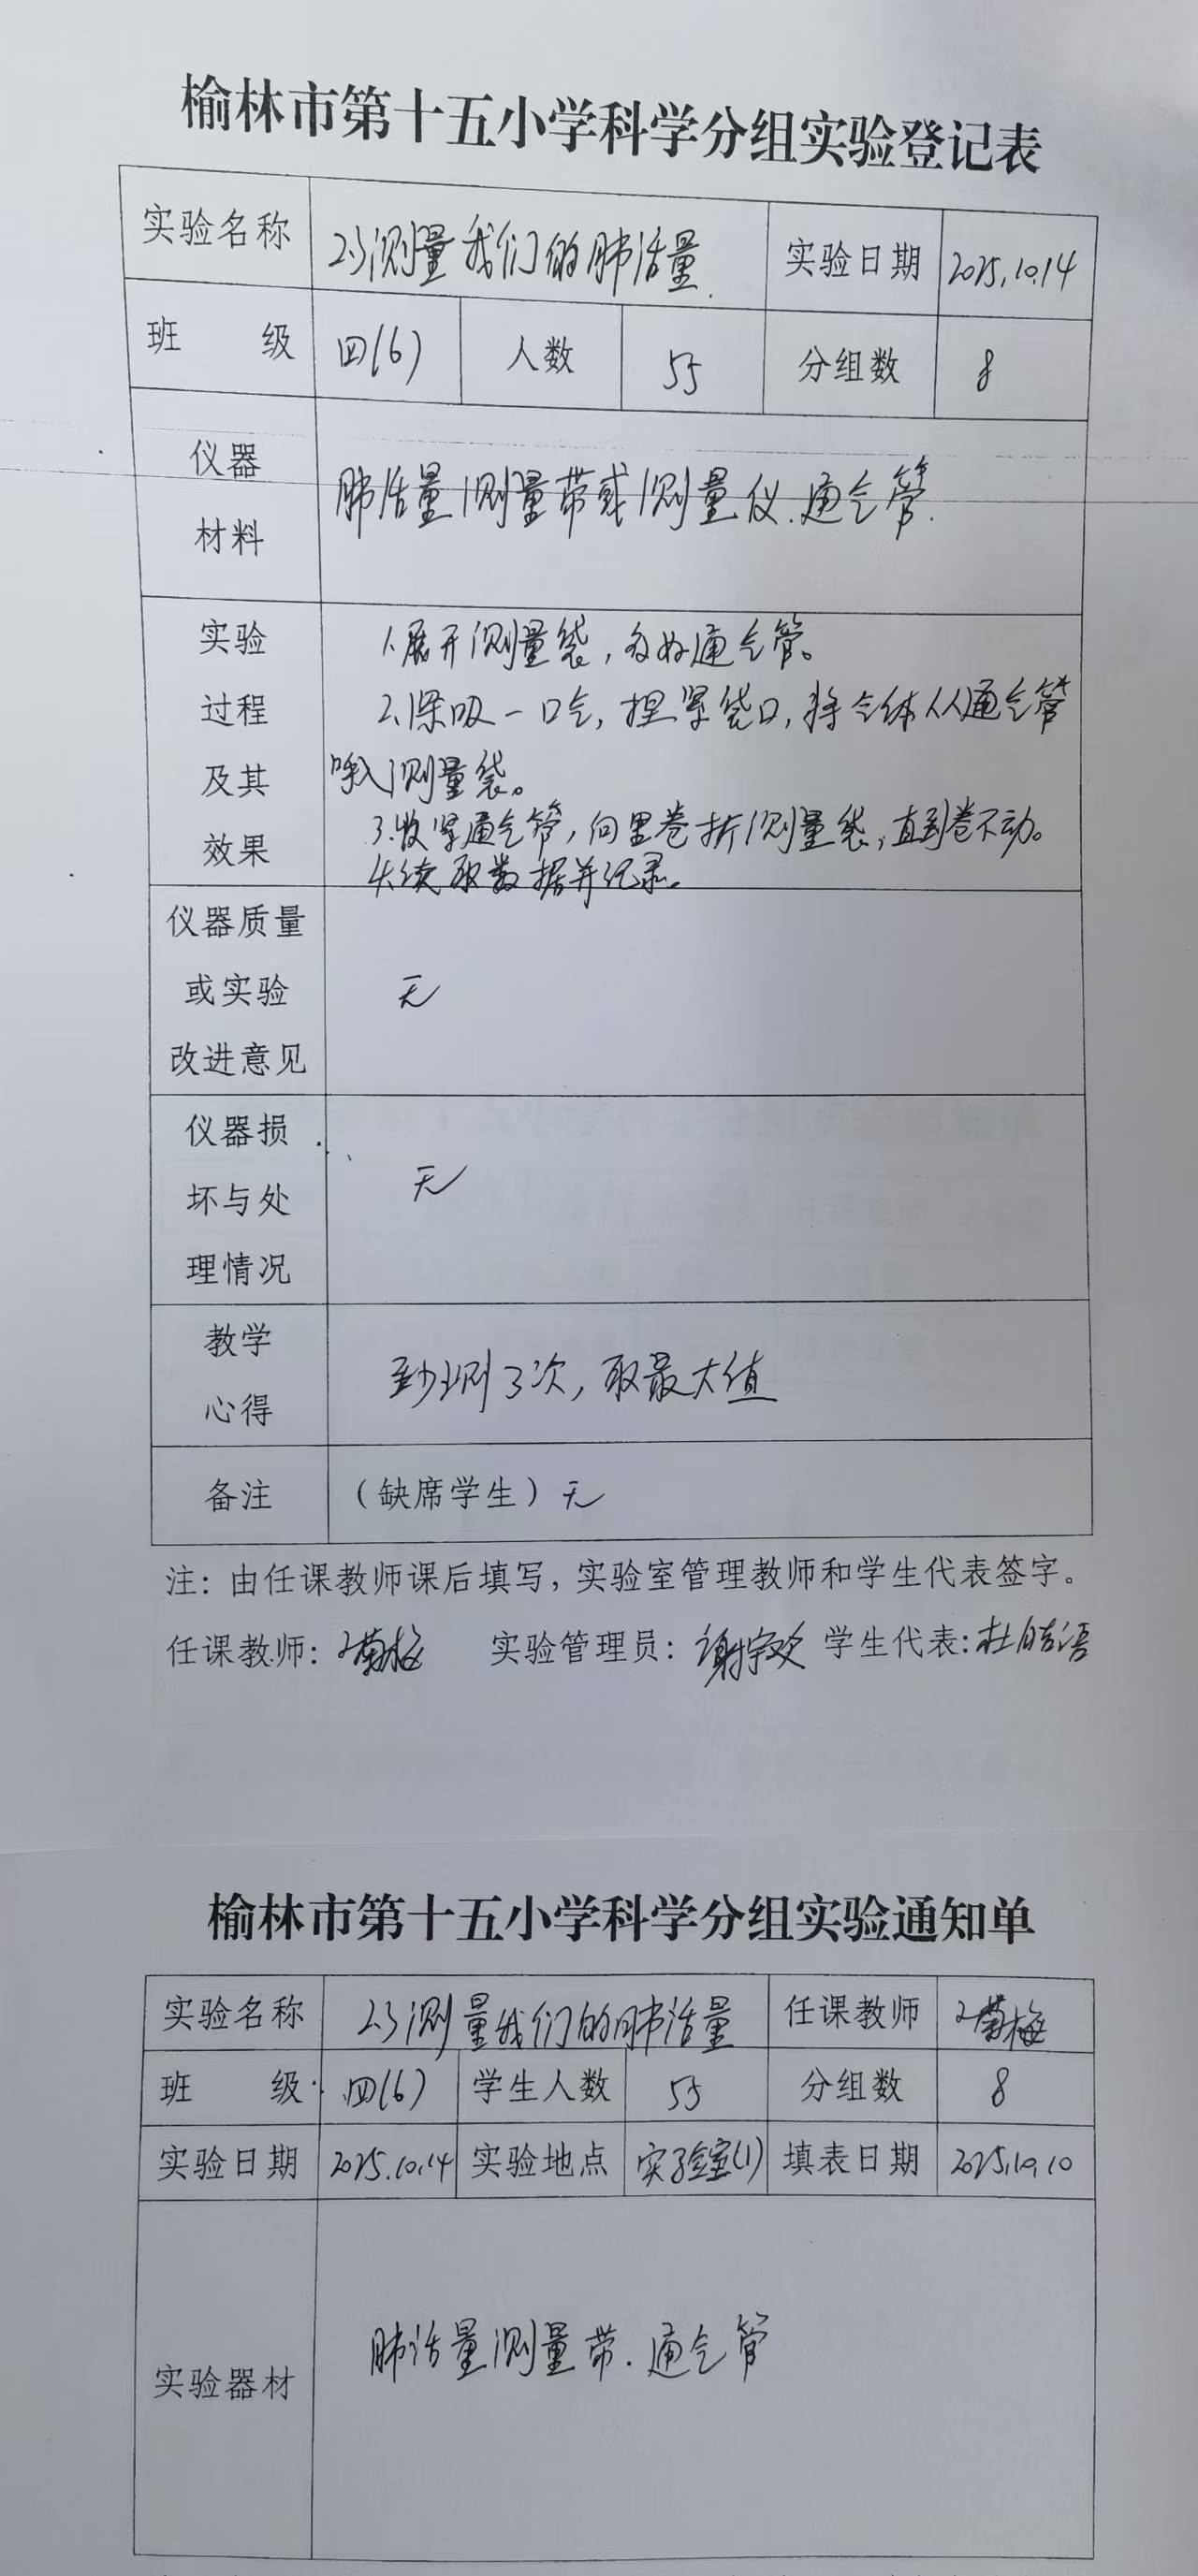 榆林市第十五小学科学分组实验登记表
实验名称 2.3测量我们的肺活量. 实验日期 2025.10.14
班 级 四(6) 人数 55 分组数 8
仪器
材料
肺活量测量带或测量仪.通气管.
实验
过程
及其
效果
1.展开测量袋,备好通气管。
2.深吸一口气,捏紧袋口,将气体从通气管
吹入测量袋。
3.收紧通气管,向里卷折测量袋,直到卷不动。
4.读取数据并记录。
仪器质量
或实验
改进意见
无
仪器损
坏与处
理情况
无
教学
心得
至少测3次,取最大值
备注 (缺席学生)无
注:由任课教师课后填写,实验室管理教师和学生代表签字。
任课教师: 菊梅 实验管理员: 谢 学生代表:杜皓语
榆林市第十五小学科学分组实验通知单
实验名称 2.3测量我们的肺活量 任课教师 菊梅
班 级 四(6) 学生人数 55 分组数 8
实验日期 2025.10.14 实验地点 实验室(1) 填表日期 2025.10.10
实验器材 肺活量测量带.通气管